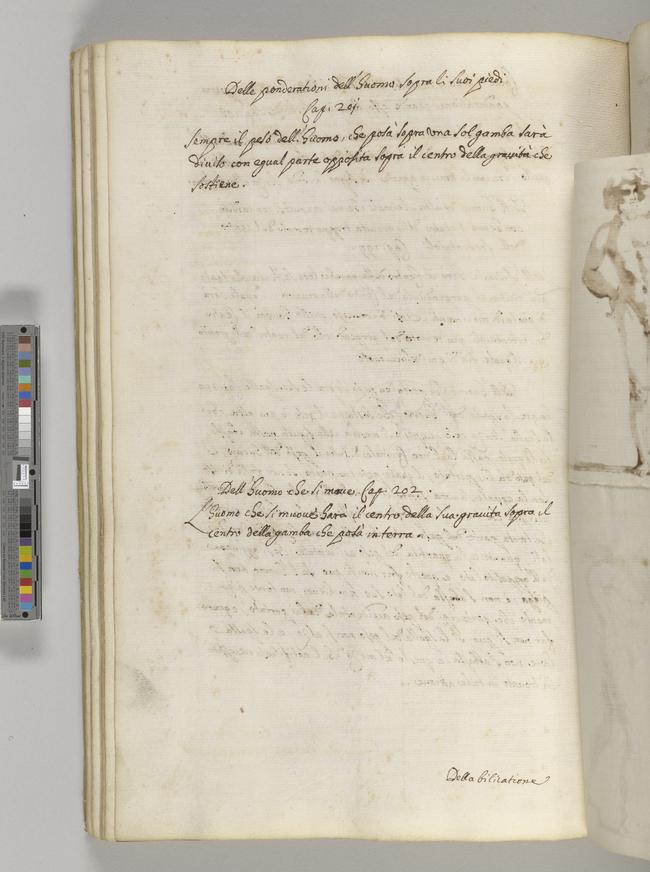 Delle ponderationi dell'huomo sopra li suoi piedi
Cap. 201.
Sempre il peso dell'huomo, che posa sopra una sol gamba sarà
diviso con egual parte opposita sopra il centro della gravità che
sostiene.
Dell'huomo che si move. Cap. 202.
L'huomo che si muove harà il centro della sua gravità sopra il
centro della gamba che posa in terra.
Della bilicatione